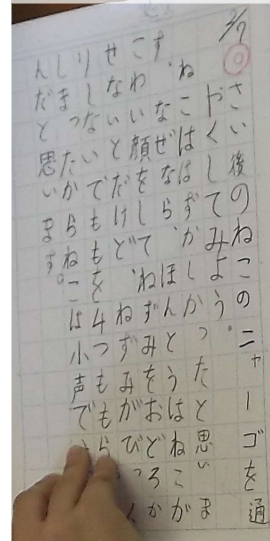 2/7
さい後のねこのニャーゴを通
やくしてみよう。
ねこははずかしかったと思いま
す。なぜならほんとうはねこが
こわい顔をして、ねずみをおどろか
せないとだけどねずみがびっく
りしないでももを4つももら
しまったからねこは小声で
んだと思います。